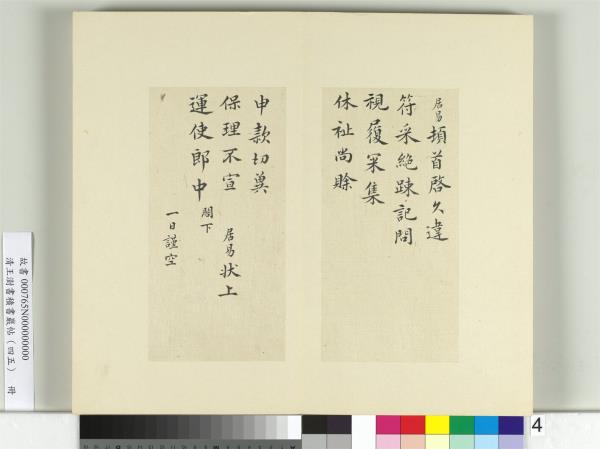 居易頓首啓久違
符采絕疎記問
視履冞集
休祉尚賒
申款切奠
保理不宣 居易狀上
運使郎中閤下
一日謹空
故書 000765N000000000
清王澍書積書巖帖（四五） 冊
4